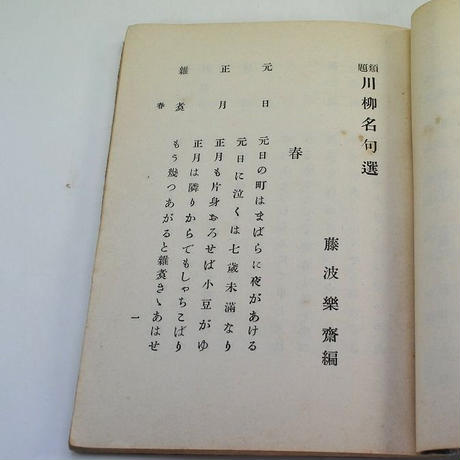 類題川柳名句選
藤波樂齋編
春
元日 元日の町はまばらに夜があける
元日に泣くは七歳未滿なり
正月 正月も片身おろせば小豆がゆ
正月は隣りからでもしやちこばり
雜煮 もう幾つあがると雜煮きゝあはせ
春
一